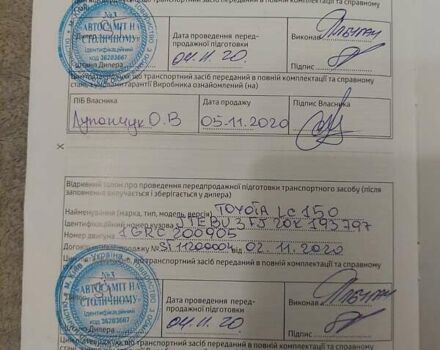 транспортний засіб переданий в повній комплектації та справному
№3
АВТОСАМІТ НА СТОЛИЧНОМУ
Ідентифікаційний
код 36283667
Штамп Дилера
Дата проведення перед-
продажної підготовки
04.11.20
Виконав
Підпис
що транспортний засіб переданий в повній комплектації та справному
гарантії Виробника ознайомлений (на)
ПІБ Власника
Дата продажу
Підпис Власника
О.В
05.11.2020
Відривний талон про проведення передпродажної підготовки транспортного засобу (після
заповнення вилучається і зберігається у дилера)
Найменування (марка, тип, модель, версія) TOYOTA LC 150
Ідентифікаційний номер кузова JTEBU3FJ20K193797
Номер двигуна 1GRC200905
02.11.2020
транспортний засіб переданий в повній комплектації та справному
№3
АВТОСАМІТ НА
СТОЛИЧНОМУ
Ідентифікаційний
код 36283667
Дилера
Дата проведення перед-
продажної підготовки
04.11.20
Виконав
Підпис
що транспортний засіб переданий в повній комплектації та справному